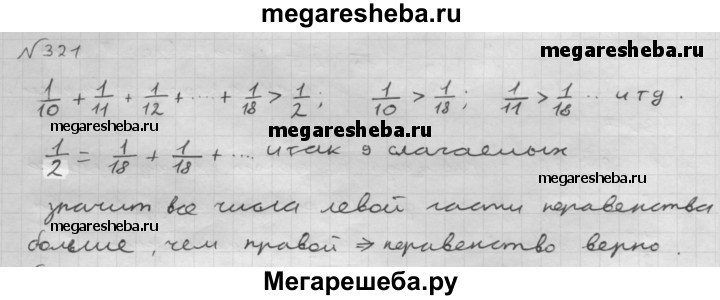 megaresheba.ru
№321
megaresheba.ru
1/10 + 1/11 + 1/12 + ... + 1/18 > 1/2; 1/10 > 1/18; 1/11 > 1/18 ... итд.
megaresheba.ru
megaresheba.ru
1/2 = 1/18 + 1/18 + ... итак 9 слагаемых
megaresheba.ru
значит все числа левой части неравенства
больше, чем правой ⇒ неравенство верно.
Мегарешеба.ру